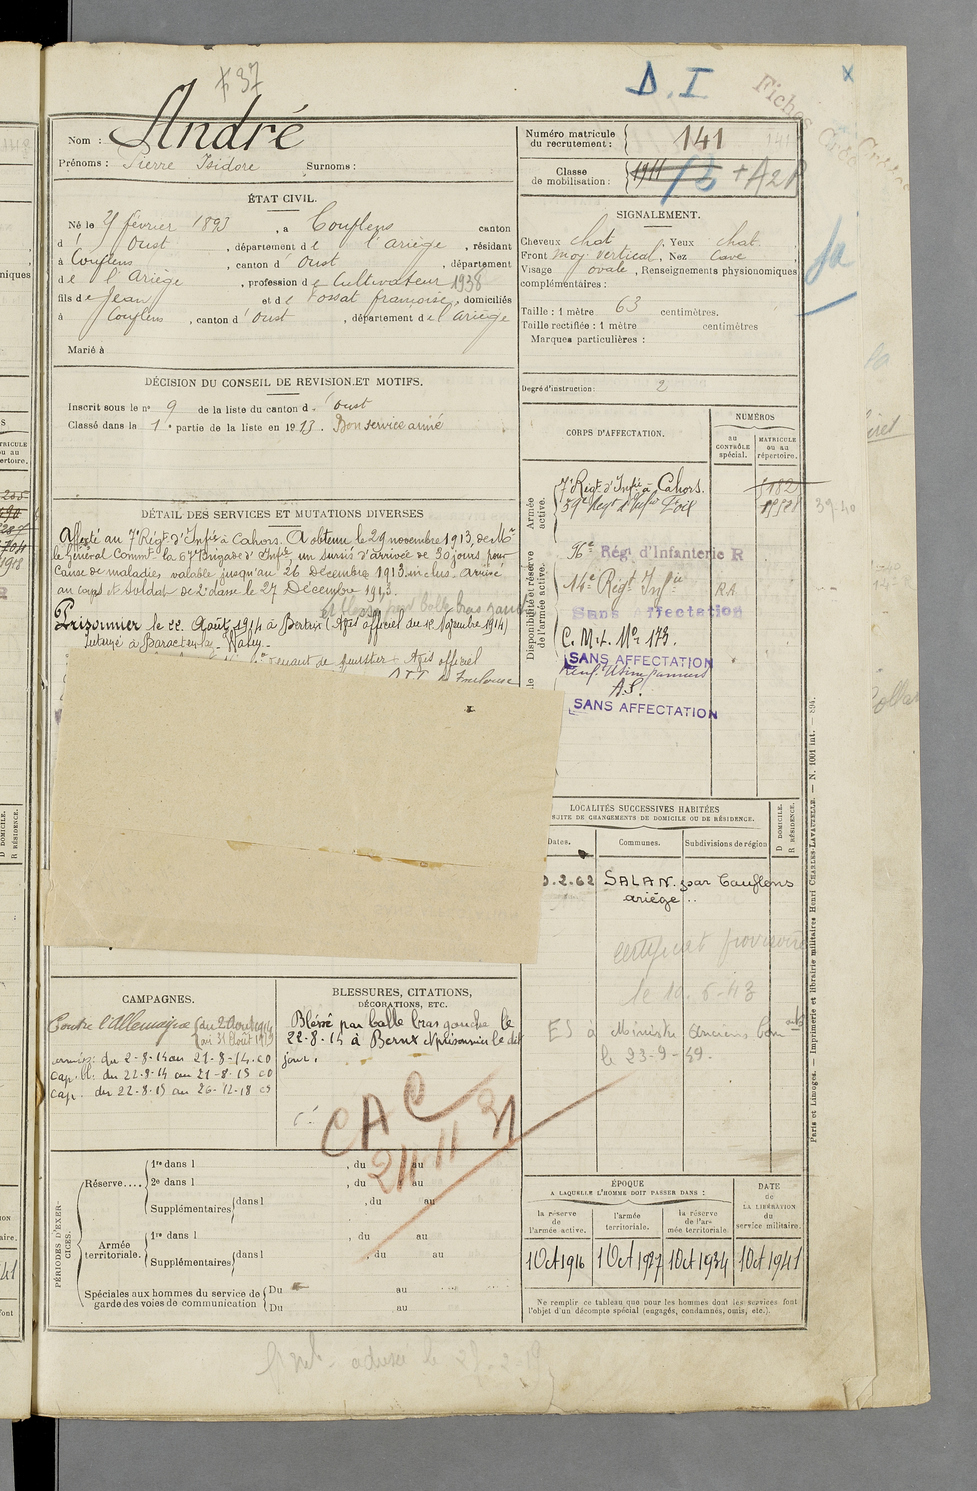 37
D.I
Fiches
Nom : André
Prénoms : Pierre Isidore Surnoms :
Numéro matricule du recrutement : 141
Classe de mobilisation : 1911 13 + A2P
ÉTAT CIVIL.
Né le février 1893, à Couflens canton
d' Oust, département de l'ariège, résidant
à Couflens, canton d' Oust, département
de l'Ariège, profession de Cultivateur 1938
fils de Jean et de Fossat françoise, domiciliés
à Couflens, canton d' oust, département de l'ariège
Marié à
SIGNALEMENT.
Cheveux chat. Yeux chat.
Front moy. vertical, Nez Cave,
Visage ovale, Renseignements physionomiques
complémentaires :
Taille : 1 mètre 63 centimètres.
Taille rectifiée : 1 mètre centimètres
Marques particulières :
Degré d'instruction : 2
DÉCISION DU CONSEIL DE REVISION ET MOTIFS.
Inscrit sous le n° 9 de la liste du canton d' oust
Classé dans la 1e partie de la liste en 1913. Bon service armé
DÉTAIL DES SERVICES ET MUTATIONS DIVERSES
Affecté au 7e Régt. d'Infie à Cahors. A obtenu le 29 novembre 1913, de Mr
le Général Commt. la 67e Brigade d'Infie, un sursis d'arrivée de 30 jours pour
cause de maladie, valable jusqu'au 26 Décembre 1913 inclus. Arrivé
au corps et soldat de 2e classe le 27 Décembre 1913.
et blessé par balle bras gauche
Prisonnier le 22 Août 1914 à Bertrix (Avis officiel du 12 Novembre 1914)
Interné à
venant de Munster Avis officiel
Toulouse
CORPS D'AFFECTATION.
NUMÉROS
au CONTRÔLE spécial.
MATRICULE ou au répertoire.
Armée active.
7e Régt. d'Infie à Cahors.
59e Régt d'Infie Foix
39-40
Disponibilité et réserve de l'armée active.
Régt d'Infanterie R
14e Régt Infie R.A.
Sans affectation
C.M.I. No 173.
SANS AFFECTATION
A.S.
SANS AFFECTATION
LOCALITÉS SUCCESSIVES HABITÉES
SUITE DE CHANGEMENTS DE DOMICILE OU DE RÉSIDENCE.
Dates. Communes. Subdivisions de région
D DOMICILE.
R RÉSIDENCE.
.2.62 SALAN. par Couflens
ariège..
certificat provisoire
le 10-6-43
ES à Ministre Anciens Combants
le 23-9-49.
CAMPAGNES.
Contre l'Allemagne du 2 Août 1914
au 31 Août 1919
du 2-8-14 au 21-8-14. CD
Cap. bl. du 22-8-14 au 21-8-15 CD
Cap. du 22-8-15 au 26-12-18 CS
BLESSURES, CITATIONS,
DÉCORATIONS, ETC.
Blessé par balle bras gauche le
22-8-14 à prisonnier le dit
jour.
CAC 31
PÉRIODES D'EXERCICES.
Réserve.... 1re dans l , du au
2e dans l , du au
Supplémentaires dans l , du au
Armée territoriale. 1re dans l , du au
Supplémentaires dans l , du au
Spéciales aux hommes du service de garde des voies de communication
Du au
Du au
ÉPOQUE
A LAQUELLE L'HOMME DOIT PASSER DANS :
la réserve de l'armée active.
l'armée territoriale.
la réserve de l'armée territoriale.
DATE de LA LIBÉRATION du service militaire.
1 Oct 1916 1 Oct 1927 1 Oct 1934 1 Oct 1941
Ne remplir ce tableau que pour les hommes dont les services font
l'objet d'un décompte spécial (engagés, condamnés, omis, etc.).
Paris et Limoges. — Imprimerie et librairie militaires Henri CHARLES-LAVAUZELLE. — N. 1001 int. — 894.